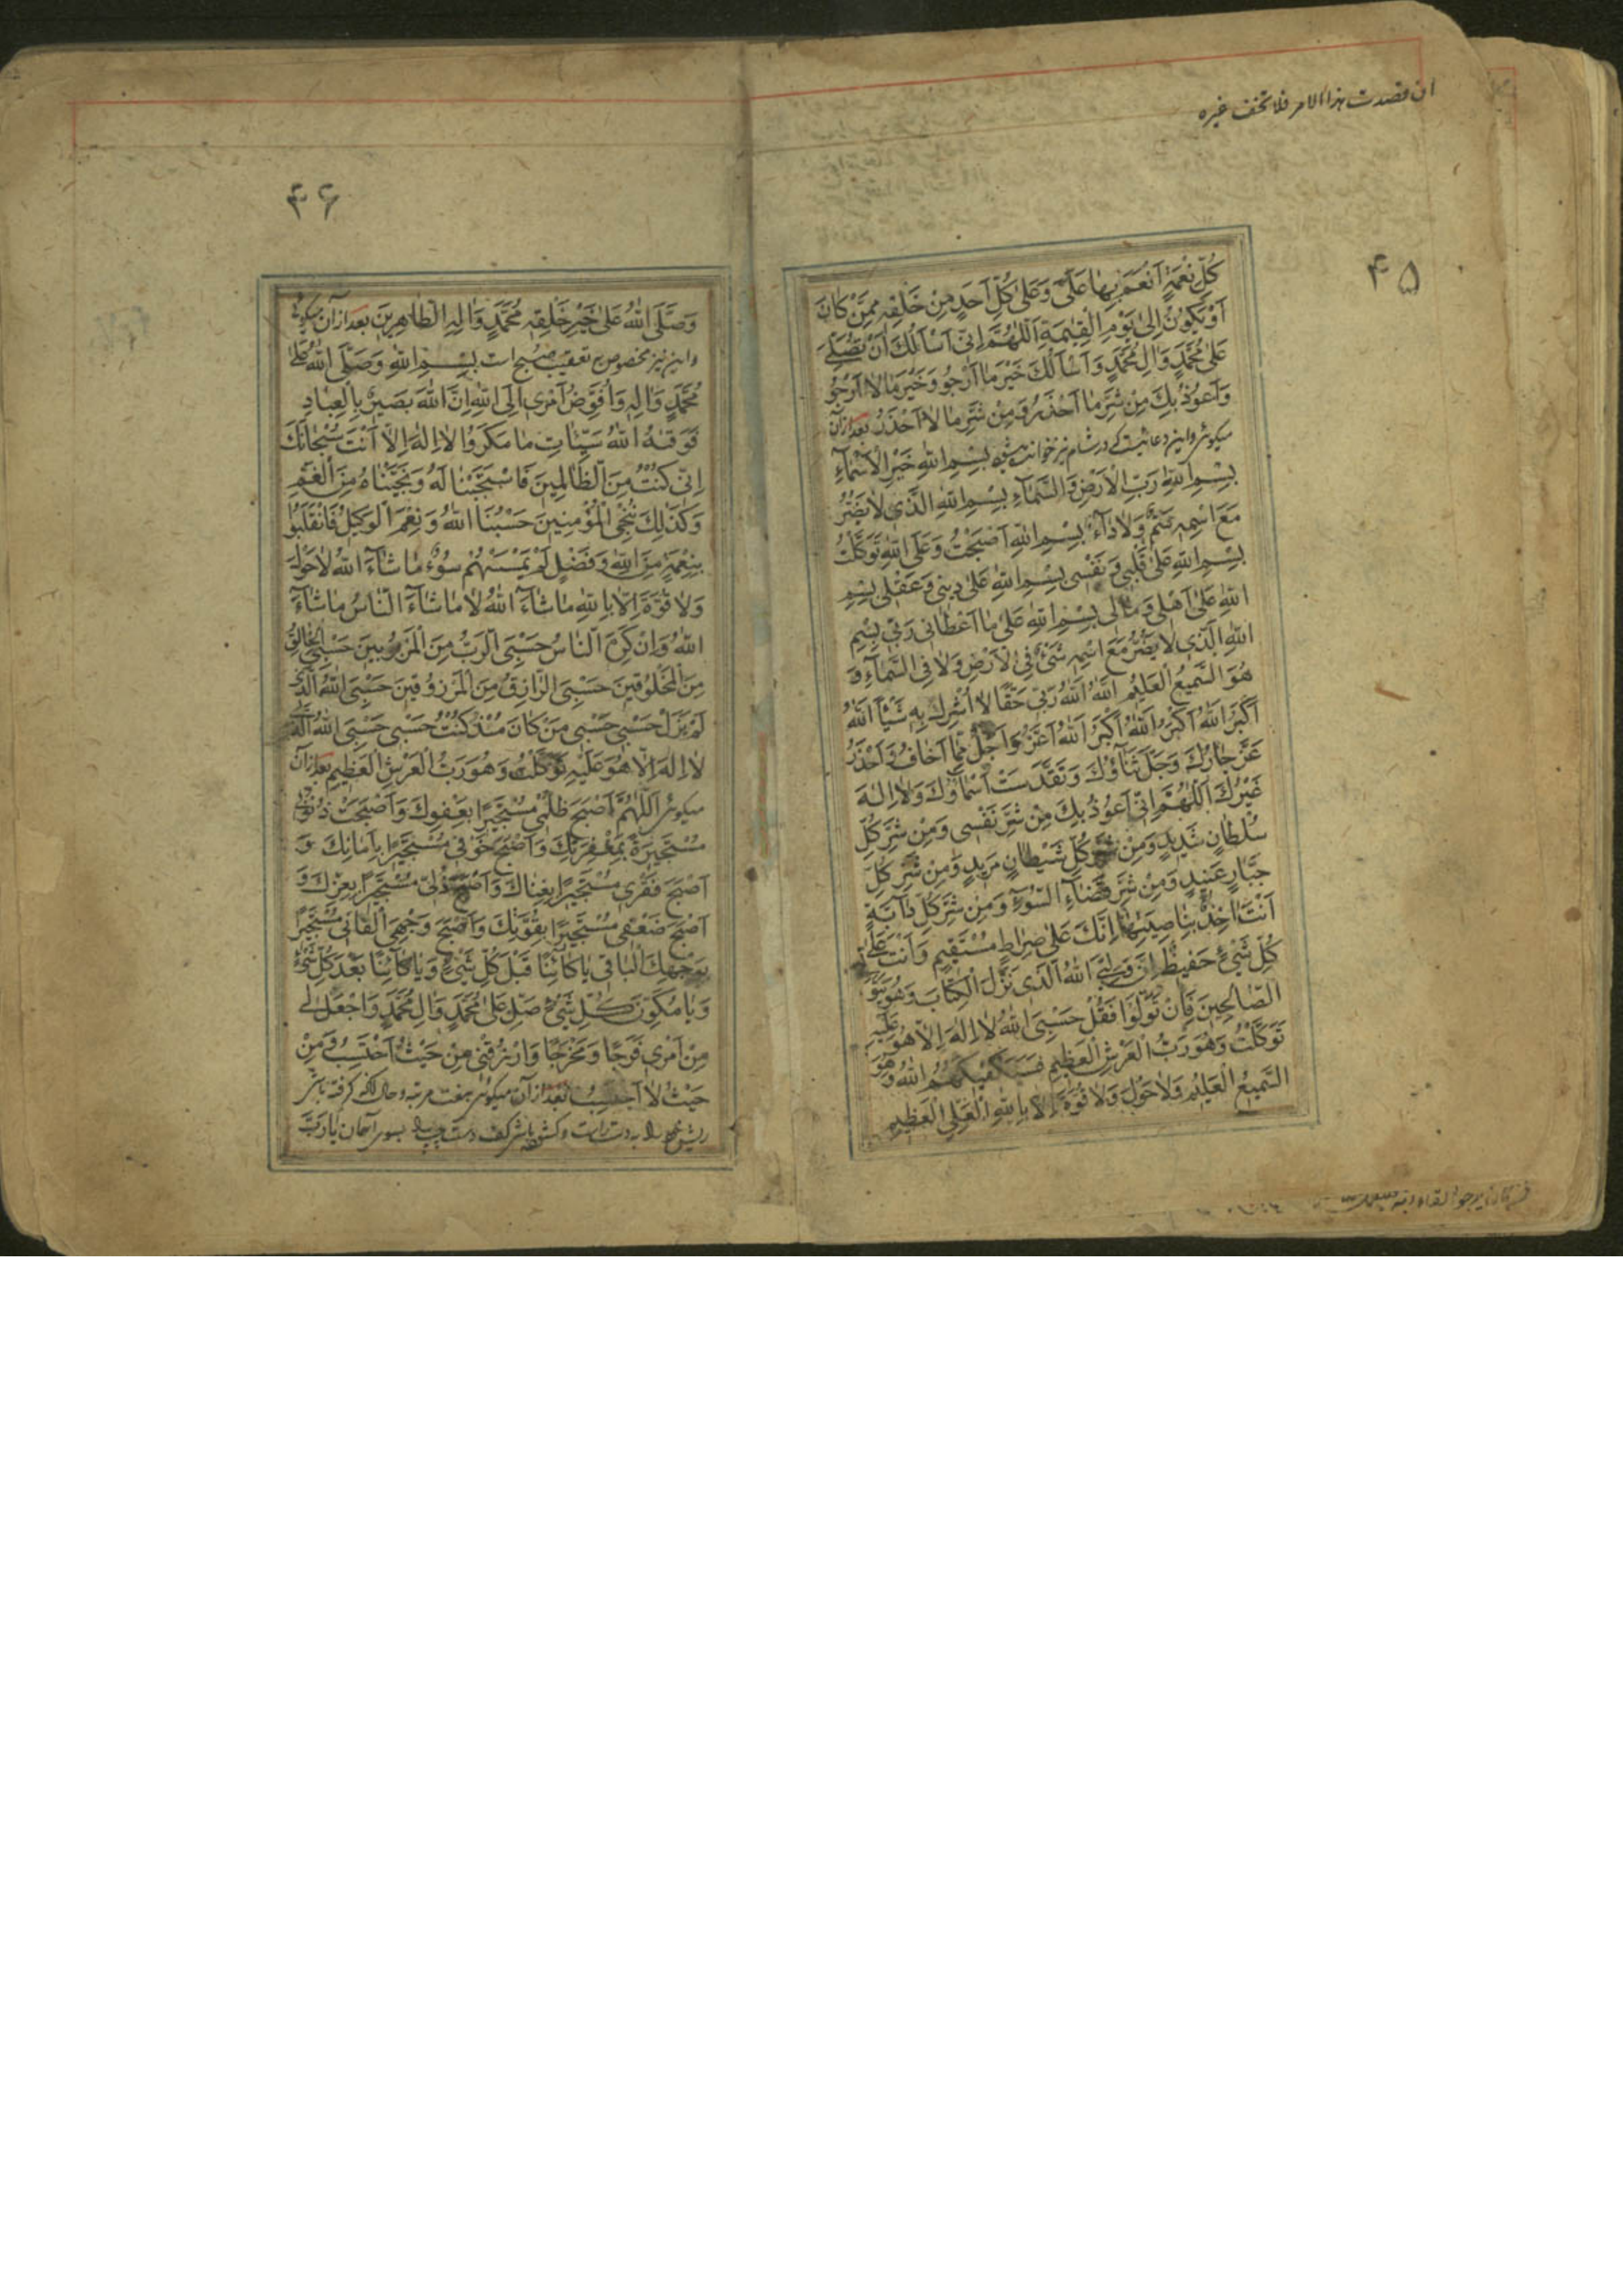 ان قصدت هذا الامر فلا تخف غیره
۴۵
كُلِّ نِعْمَةٍ اَنْعَمَ بِهٰا عَلَیَّ وَعَلیٰ كُلِّ اَحَدٍ مِنْ خَلْقِهِ مِمَّنْ كٰانَ
اَوْ یَكُوْنُ اِلیٰ یَوْمِ الْقِیٰمَةِ اَللّٰهُمَّ اِنّی اَسْاَلُكَ اَنْ تُصَلِّیَ
عَلیٰ مُحَمَّدٍ وَاٰلِ مُحَمَّدٍ وَ اَسْاَلُكَ خَیْرَ مٰا اَرْجُو وَخَیْرَ مٰا لاٰ اَرْجُو
وَاَعُوْذُ بِكَ مِنْ شَرِّ مٰا اَحْذَرُ وَ مِنْ شَرِّ مٰا لاٰ اَحْذَرُ بعد ازان
میکوئی واین دعائیست که در شام نیز خوانده میشود بِسْمِ اللّٰهِ خَیْرِ الْاَسْمٰآءِ
بِسْمِ اللّٰهِ رَبِّ الْاَرْضِ وَ السَّمٰآءِ بِسْمِ اللّٰهِ الَّذی لاٰ یَضُرُّ
مَعَ اسْمِهِ سَمٌّ وَلاٰ دٰآءٌ بِسْمِ اللّٰهِ اَصْبَحْتُ وَعَلَی اللّٰهِ تَوَكَّلْتُ
بِسْمِ اللّٰهِ عَلیٰ قَلْبی وَ نَفْسی بِسْمِ اللّٰهِ عَلیٰ دینی وَ عَقْلی بِسْمِ
اللّٰهِ عَلیٰ اَهْلی وَ مٰالی بِسْمِ اللّٰهِ عَلیٰ مٰا اَعْطٰانی رَبّی بِسْمِ
اللّٰهِ الَّذی لاٰ یَضُرُّ مَعَ اسْمِهِ شَیْءٌ فِی الْاَرْضِ وَلاٰ فِی السَّمٰآءِ وَ
هُوَ السَّمیعُ الْعَلیمُ اَللّٰهُ اَللّٰهُ رَبّی حَقًّا لاٰ اُشْرِكُ بِهِ شَیْئًا اَللّٰهُ
اَكْبَرُ اَللّٰهُ اَكْبَرُ اَللّٰهُ اَكْبَرُ اَللّٰهُ اَعَزُّ وَاَجَلُّ مِمّٰا اَخٰافُ وَ اَحْذَرُ
عَزَّ جٰارُكَ وَ جَلَّ ثَنٰآؤُكَ وَ تَقَدَّسَتْ اَسْمٰاؤُكَ وَلاٰ اِلٰهَ
غَیْرُكَ اَللّٰهُمَّ اِنّی اَعُوْذُ بِكَ مِنْ شَرِّ نَفْسی وَ مِنْ شَرِّ كُلِّ
سُلْطٰانٍ شَدیدٍ وَمِنْ شَرِّ كُلِّ شَیْطٰانٍ مَریدٍ وَمِنْ شَرِّ كُلِّ
جَبّٰارٍ عَنیدٍ وَمِنْ شَرِّ قَضٰآءِ السُّوْٓءِ وَمِنْ شَرِّ كُلِّ دٰآبَّةٍ
اَنْتَ اٰخِذٌ بِنٰاصِیَتِهٰا اِنَّكَ عَلیٰ صِرٰاطٍ مُسْتَقیمٍ وَاَنْتَ عَلیٰ
كُلِّ شَیْءٍ حَفیظٌ اِنَّ وَلِیِّیَ اللّٰهُ الَّذی نَزَّلَ الْكِتٰابَ وَهُوَ یَتَوَلَّی
الصّٰالِحینَ فَاِنْ تَوَلَّوْا فَقُلْ حَسْبِیَ اللّٰهُ لاٰ اِلٰهَ اِلاّٰ هُوَ عَلَیْهِ
تَوَكَّلْتُ وَهُوَ رَبُّ الْعَرْشِ الْعَظیمِ فَسَیَكْفیكَهُمُ اللّٰهُ وَ هُوَ
السَّمیعُ الْعَلیمُ وَلاٰ حَوْلَ وَلاٰ قُوَّةَ اِلاّٰ بِاللّٰهِ الْعَلِیِّ الْعَظیمِ
۴۶
وَصَلَّی اللّٰهُ عَلیٰ خَیْرِ خَلْقِهِ مُحَمَّدٍ وَاٰلِهِ الطّٰاهِرینَ بعد ازان میکوئی
واین نیز مخصوص تعقیب صبح است بِسْمِ اللّٰهِ وَصَلَّی اللّٰهُ عَلیٰ
مُحَمَّدٍ وَاٰلِهِ وَ اُفَوِّضُ اَمْری اِلَی اللّٰهِ اِنَّ اللّٰهَ بَصیرٌ بِالْعِبٰادِ
فَوَقٰیهُ اللّٰهُ سَیِّئٰاتِ مٰا مَكَرُوْا لاٰ اِلٰهَ اِلاّٰ اَنْتَ سُبْحٰانَكَ
اِنّی كُنْتُ مِنَ الظّٰالِمینَ فَاسْتَجَبْنٰا لَهُ وَ نَجَّیْنٰاهُ مِنَ الْغَمِّ
وَكَذٰلِكَ نُنْجِی الْمُؤْمِنینَ حَسْبُنَا اللّٰهُ وَ نِعْمَ الْوَكیلُ فَانْقَلَبُوْا
بِنِعْمَةٍ مِنَ اللّٰهِ وَ فَضْلٍ لَمْ یَمْسَسْهُمْ سُوْٓءٌ مٰا شٰآءَ اللّٰهُ لاٰ حَوْلَ
وَلاٰ قُوَّةَ اِلاّٰ بِاللّٰهِ مٰا شٰآءَ اللّٰهُ لاٰ مٰا شٰآءَ النّٰاسُ مٰا شٰآءَ
اللّٰهُ وَاِنْ كَرِهَ النّٰاسُ حَسْبِیَ الرَّبُّ مِنَ الْمَرْبُوْبینَ حَسْبِیَ الْخٰالِقُ
مِنَ الْمَخْلُوْقینَ حَسْبِیَ الرّٰازِقُ مِنَ الْمَرْزُوْقینَ حَسْبِیَ اللّٰهُ الَّذی
لَمْ یَزَلْ حَسْبی حَسْبی مَنْ كٰانَ مُنْذُ كُنْتُ حَسْبی حَسْبِیَ اللّٰهُ الَّذی
لاٰ اِلٰهَ اِلاّٰ هُوَ عَلَیْهِ تَوَكَّلْتُ وَهُوَ رَبُّ الْعَرْشِ الْعَظیمِ بعد ازان
میکوئی اَللّٰهُمَّ اَصْبَحَ ظُلْمی مُسْتَجیرًا بِعَفْوِكَ وَ اَصْبَحَتْ ذُنُوْبی
مُسْتَجیرَةً بِمَغْفِرَتِكَ وَ اَصْبَحَ خَوْفی مُسْتَجیرًا بِاَمٰانِكَ وَ
اَصْبَحَ فَقْری مُسْتَجیرًا بِغِنٰاكَ وَ اَصْبَحَ ذُلّی مُسْتَجیرًا بِعِزِّكَ وَ
اَصْبَحَ ضَعْفی مُسْتَجیرًا بِقُوَّتِكَ وَ اَصْبَحَ وَجْهِیَ الْفٰانی مُسْتَجیرًا
بِوَجْهِكَ الْبٰاقی یٰا كٰآئِنًا قَبْلَ كُلِّ شَیْءٍ وَ یٰا كٰآئِنًا بَعْدَ كُلِّ شَیْءٍ
وَ یٰا مُكَوِّنَ كُلِّ شَیْءٍ صَلِّ عَلیٰ مُحَمَّدٍ وَاٰلِ مُحَمَّدٍ وَاجْعَلْ لی
مِنْ اَمْری فَرَجًا وَ مَخْرَجًا وَ ارْزُقْنی مِنْ حَیْثُ اَحْتَسِبُ وَ مِنْ
حَیْثُ لاٰ اَحْتَسِبُ بعد ازان میکوئی هفت مرتبه وحال آنکه کرفته باشی
ریش را بدست راست و کشوده باشی کف دست چپ را بسوی آسمان یٰا رَبَّ